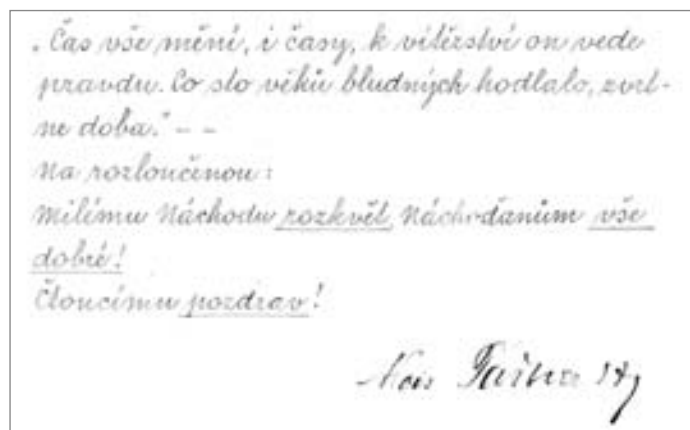 „Čas vše mění, i časy, k vítězství on vede
pravdu. Co sto věků bludných hodlalo, zvrt-
ne doba." - -
Na rozloučenou:
Milému Náchodu rozkvět, Náchoďanům vše
dobré!
Čtoucímu pozdrav!